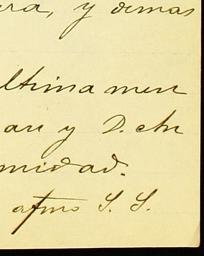 ra, y demas
ltima men
an y D. 
midad.
afmo S. S.